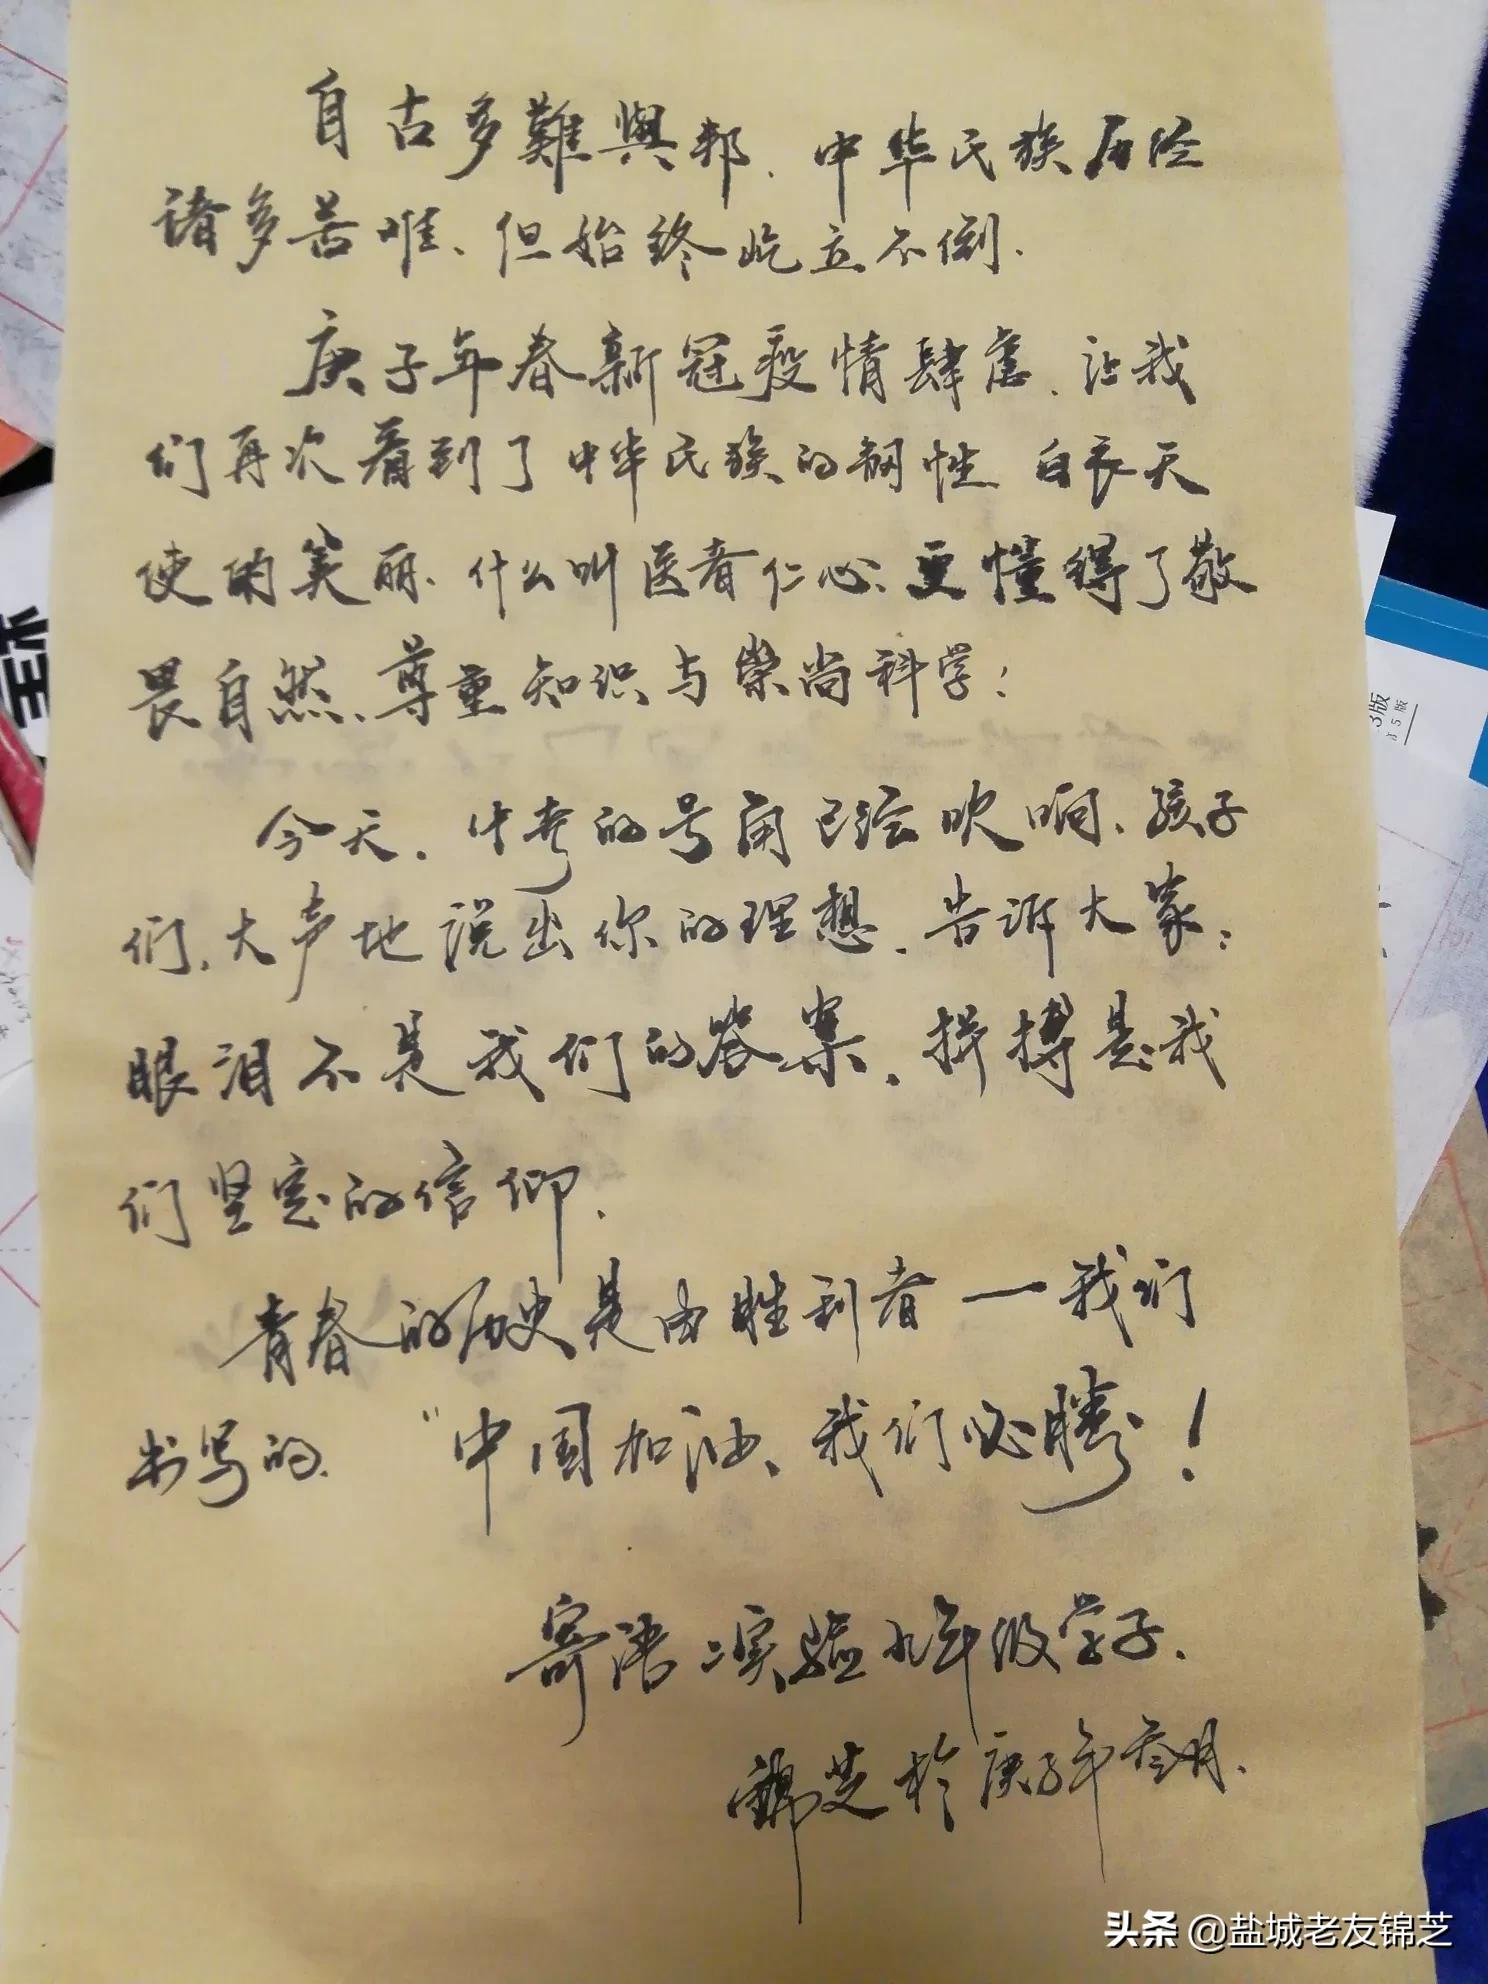 自古多難興邦，中华民族历经
诸多苦难、但始终屹立不倒.
庚子年春新冠疫情肆虐，让我
们再次看到了中华民族的韧性、白衣天
使的美丽、什么叫医者仁心、更懂得了敬
畏自然、尊重知识与崇尚科学！
今天，中考的号角已经吹响、孩子
们、大声地说出你的理想，告诉大家：
眼泪不是我们的答案，拼搏是我
们坚定的信仰.
青春的历史是由胜利者一我们
书写的. “中国加油、我们必勝！
寄语二实验九年级学子.
锦芝於庚子年叁月.
3版
第5版
头条 @盐城老友锦芝